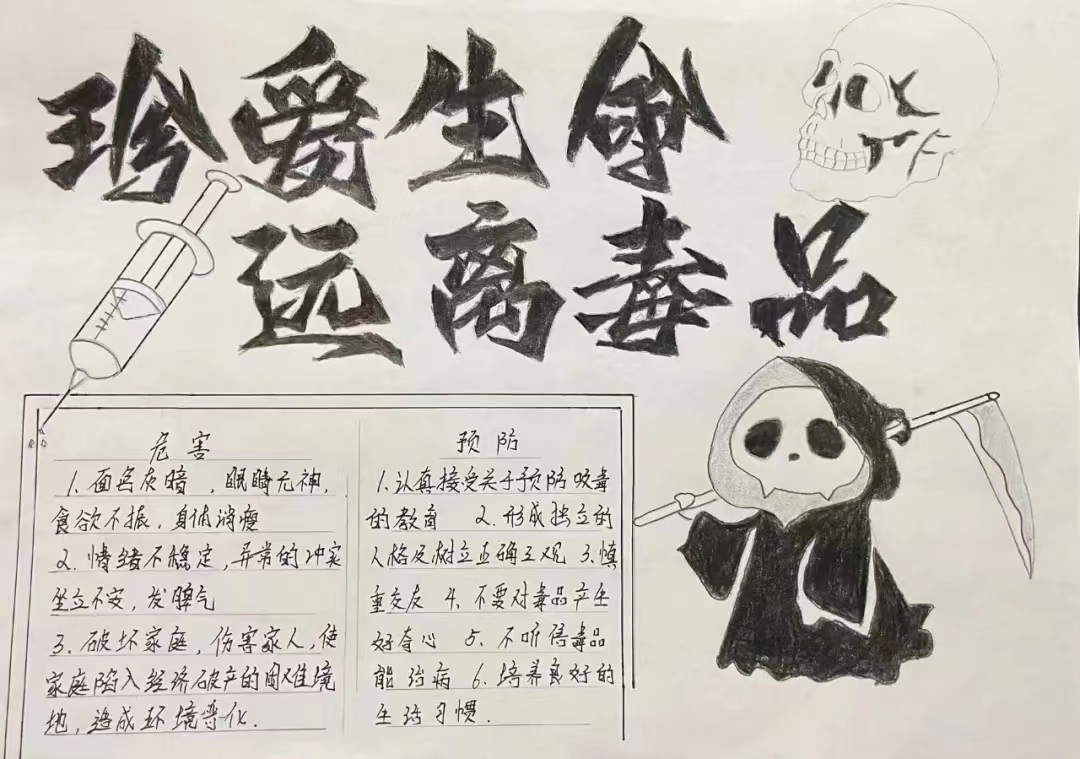 珍爱生命
远离毒品
危害
1. 面色灰暗，眼睛无神，
食欲不振，身体消瘦
2. 情绪不稳定，异常的冲突
坐立不安，发脾气
3. 破坏家庭，伤害家人，使
家庭陷入经济破产的困难境
地，造成环境恶化.
预防
1.认真接受关于预防吸毒
的教育 2. 形成独立的
人格及树立正确三观 3.慎
重交友 4. 不要对毒品产生
好奇心 5. 不听信毒品
能治病 6. 培养良好的
生活习惯.